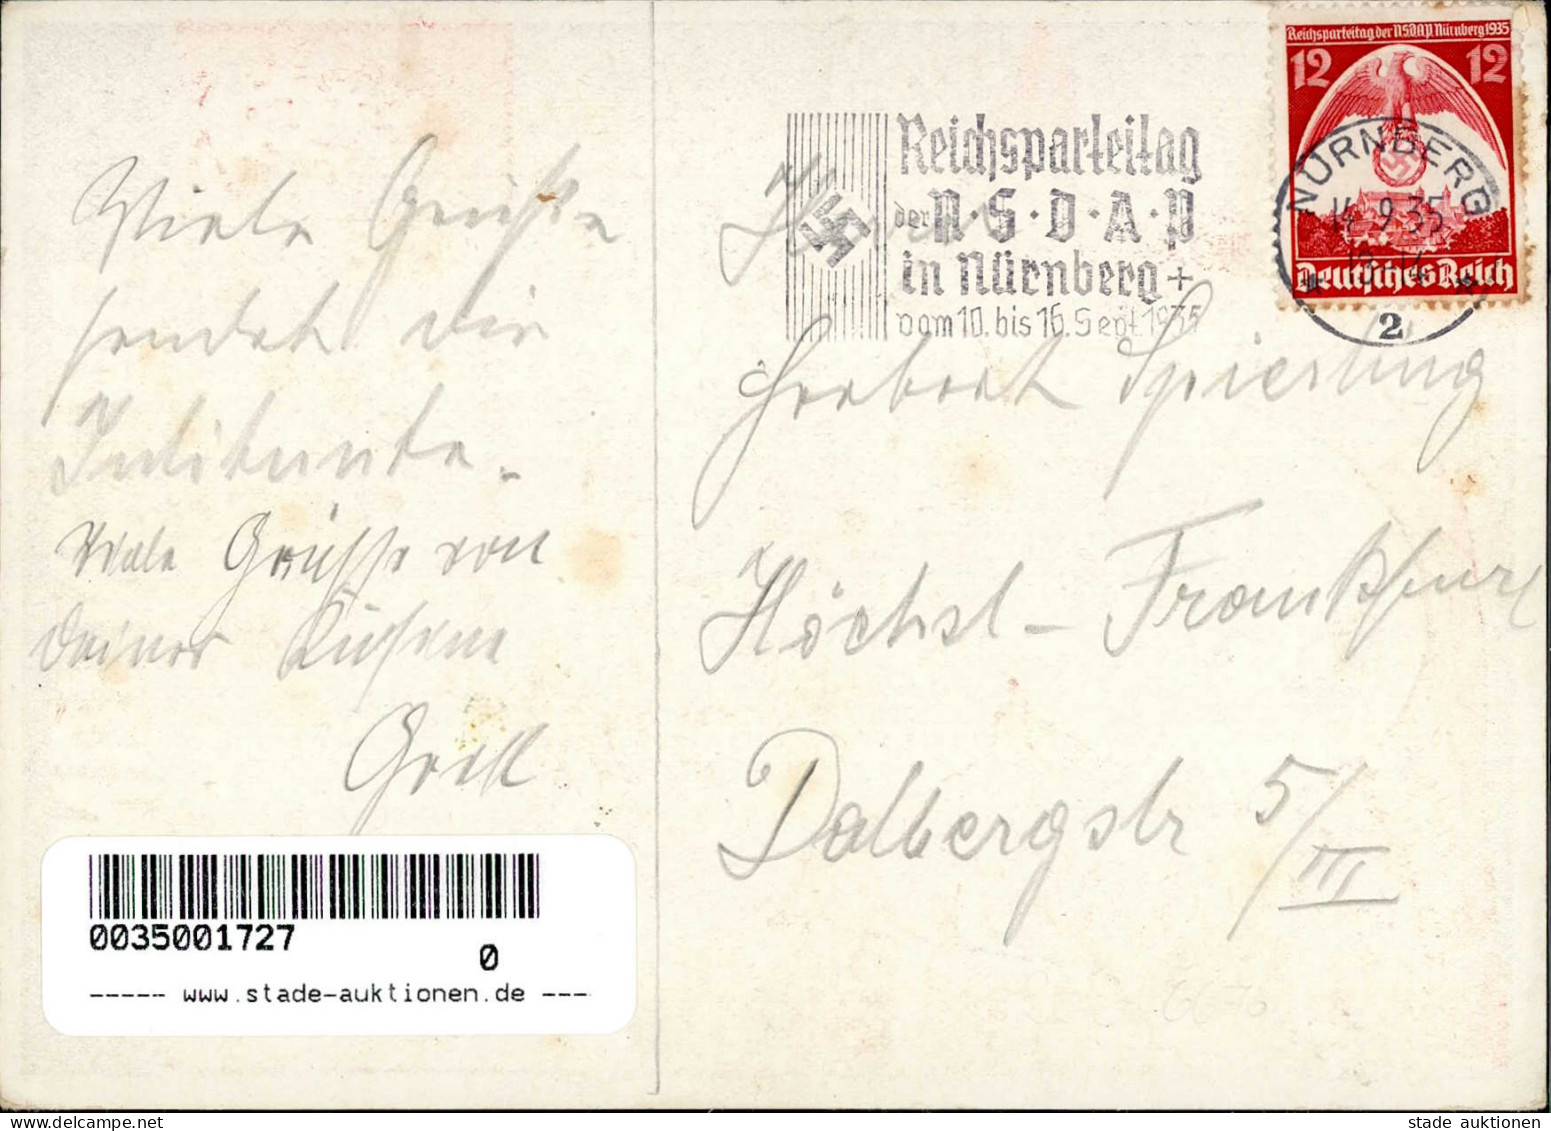 Viele Grüße
sendet dir
Viele Grüsse von
deiner Kusine
Reichsparteitag
der N·S·D·A·P
in Nürnberg +
vom 10. bis 16. Sept. 1935
Reichsparteitag der N.S.D.A.P. Nürnberg 1935
12 12
NÜRNBERG
14.9.35
2
Deutsches Reich
Herrn
Herbert Spierling
Höchst - Frankfurt
Dalbergstr 5/III
0035001727
0
----- www.stade-auktionen.de ---
stade auktionen